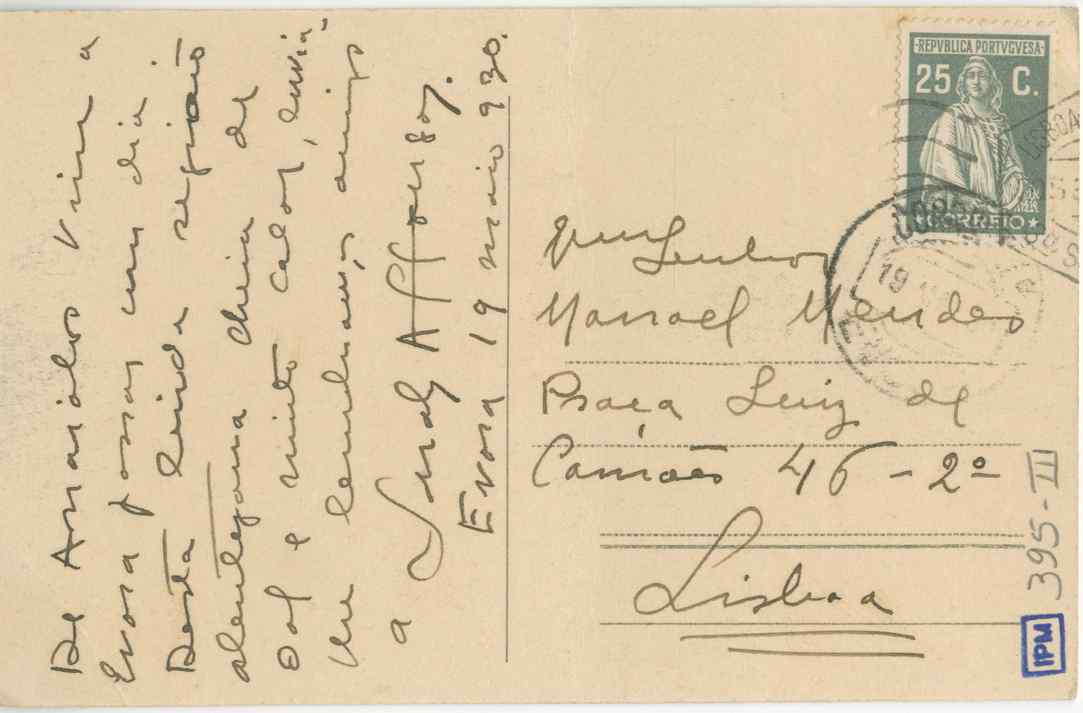 De Arraiolos vim a
Evora passar um dia.
Desta linda região
alentejana cheia de
sol e muito calor, envia-
lhe lembranças amigas
a Sarah Affonso.
Evora 19 maio 930.
REPVBLICA PORTVGVESA
25 C.
CORREIO
LISBOA
19
Senhor
Manoel Mendes
Praça Luiz de
Camões 46-2º
Lisboa
395-III
IPM